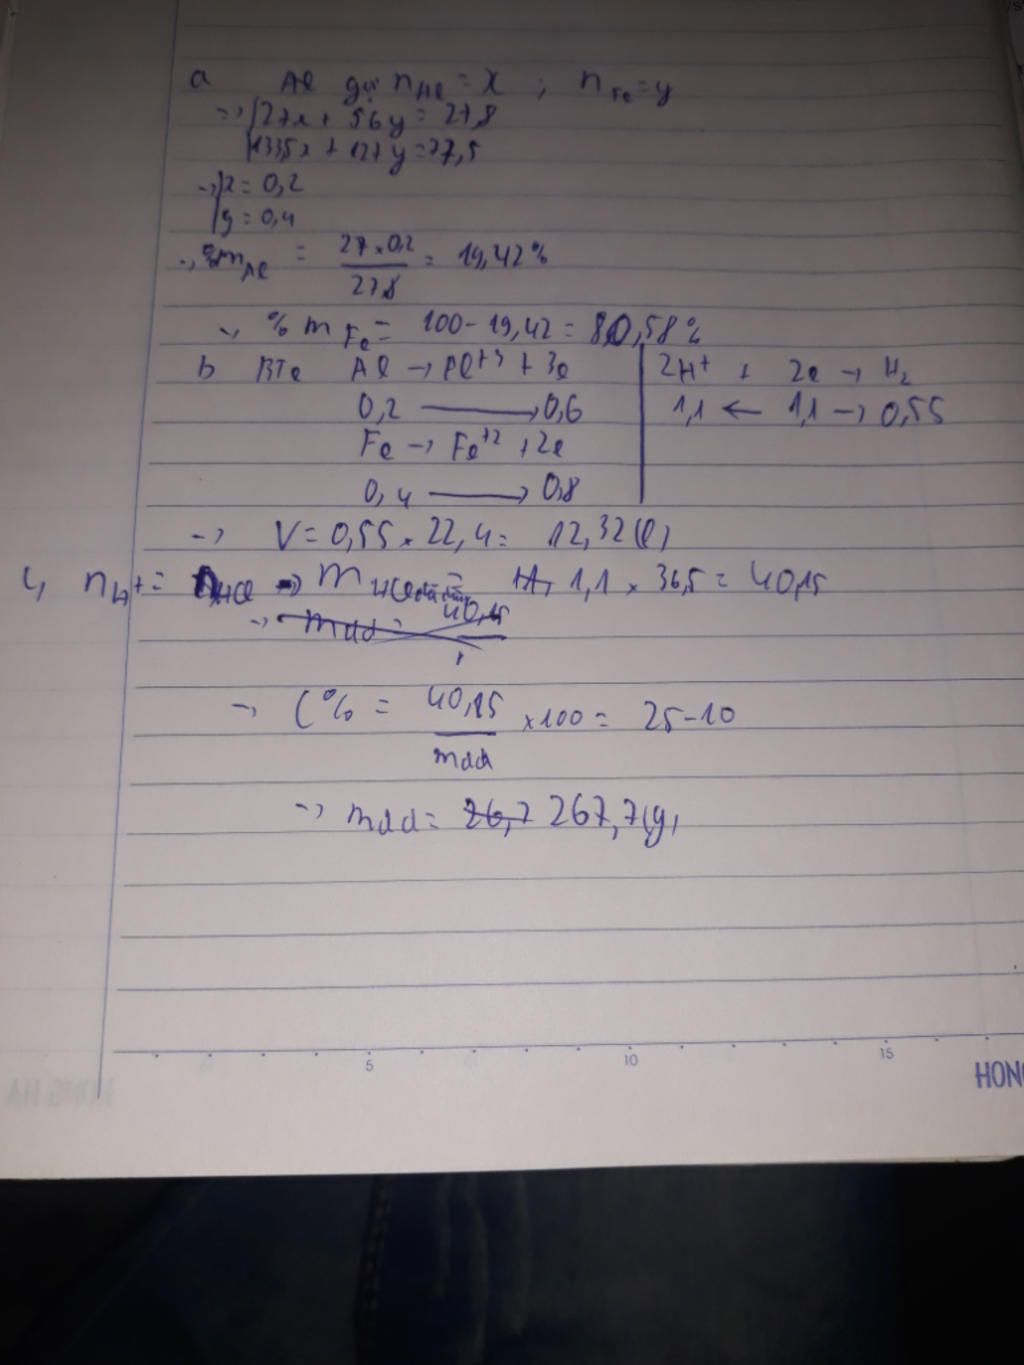 a Al gọi nAl = x ; nFe = y
→ 27x + 56y = 27,8
133,5x + 127y = 77,5
→ x = 0,2
y = 0,4
→ %mAl = 27×0,2 / 27,8 = 19,42%
→ %mFe = 100 - 19,42 = 80,58%
b BTe Al → Al+3 + 3e | 2H+ + 2e → H2
0,2 → 0,6 | 1,1 ← 1,1 → 0,55
Fe → Fe+2 + 2e
0,4 → 0,8
→ V = 0,55 × 22,4 = 12,32 (l)
c, nH+ = nHCl → mHCl = 1,1 × 36,5 = 40,15
→ mdd = 40,15
→ C% = 40,15 / mdd × 100 = 25-10
→ mdd = 26,7 267,7 (g)
5 10 15
HON